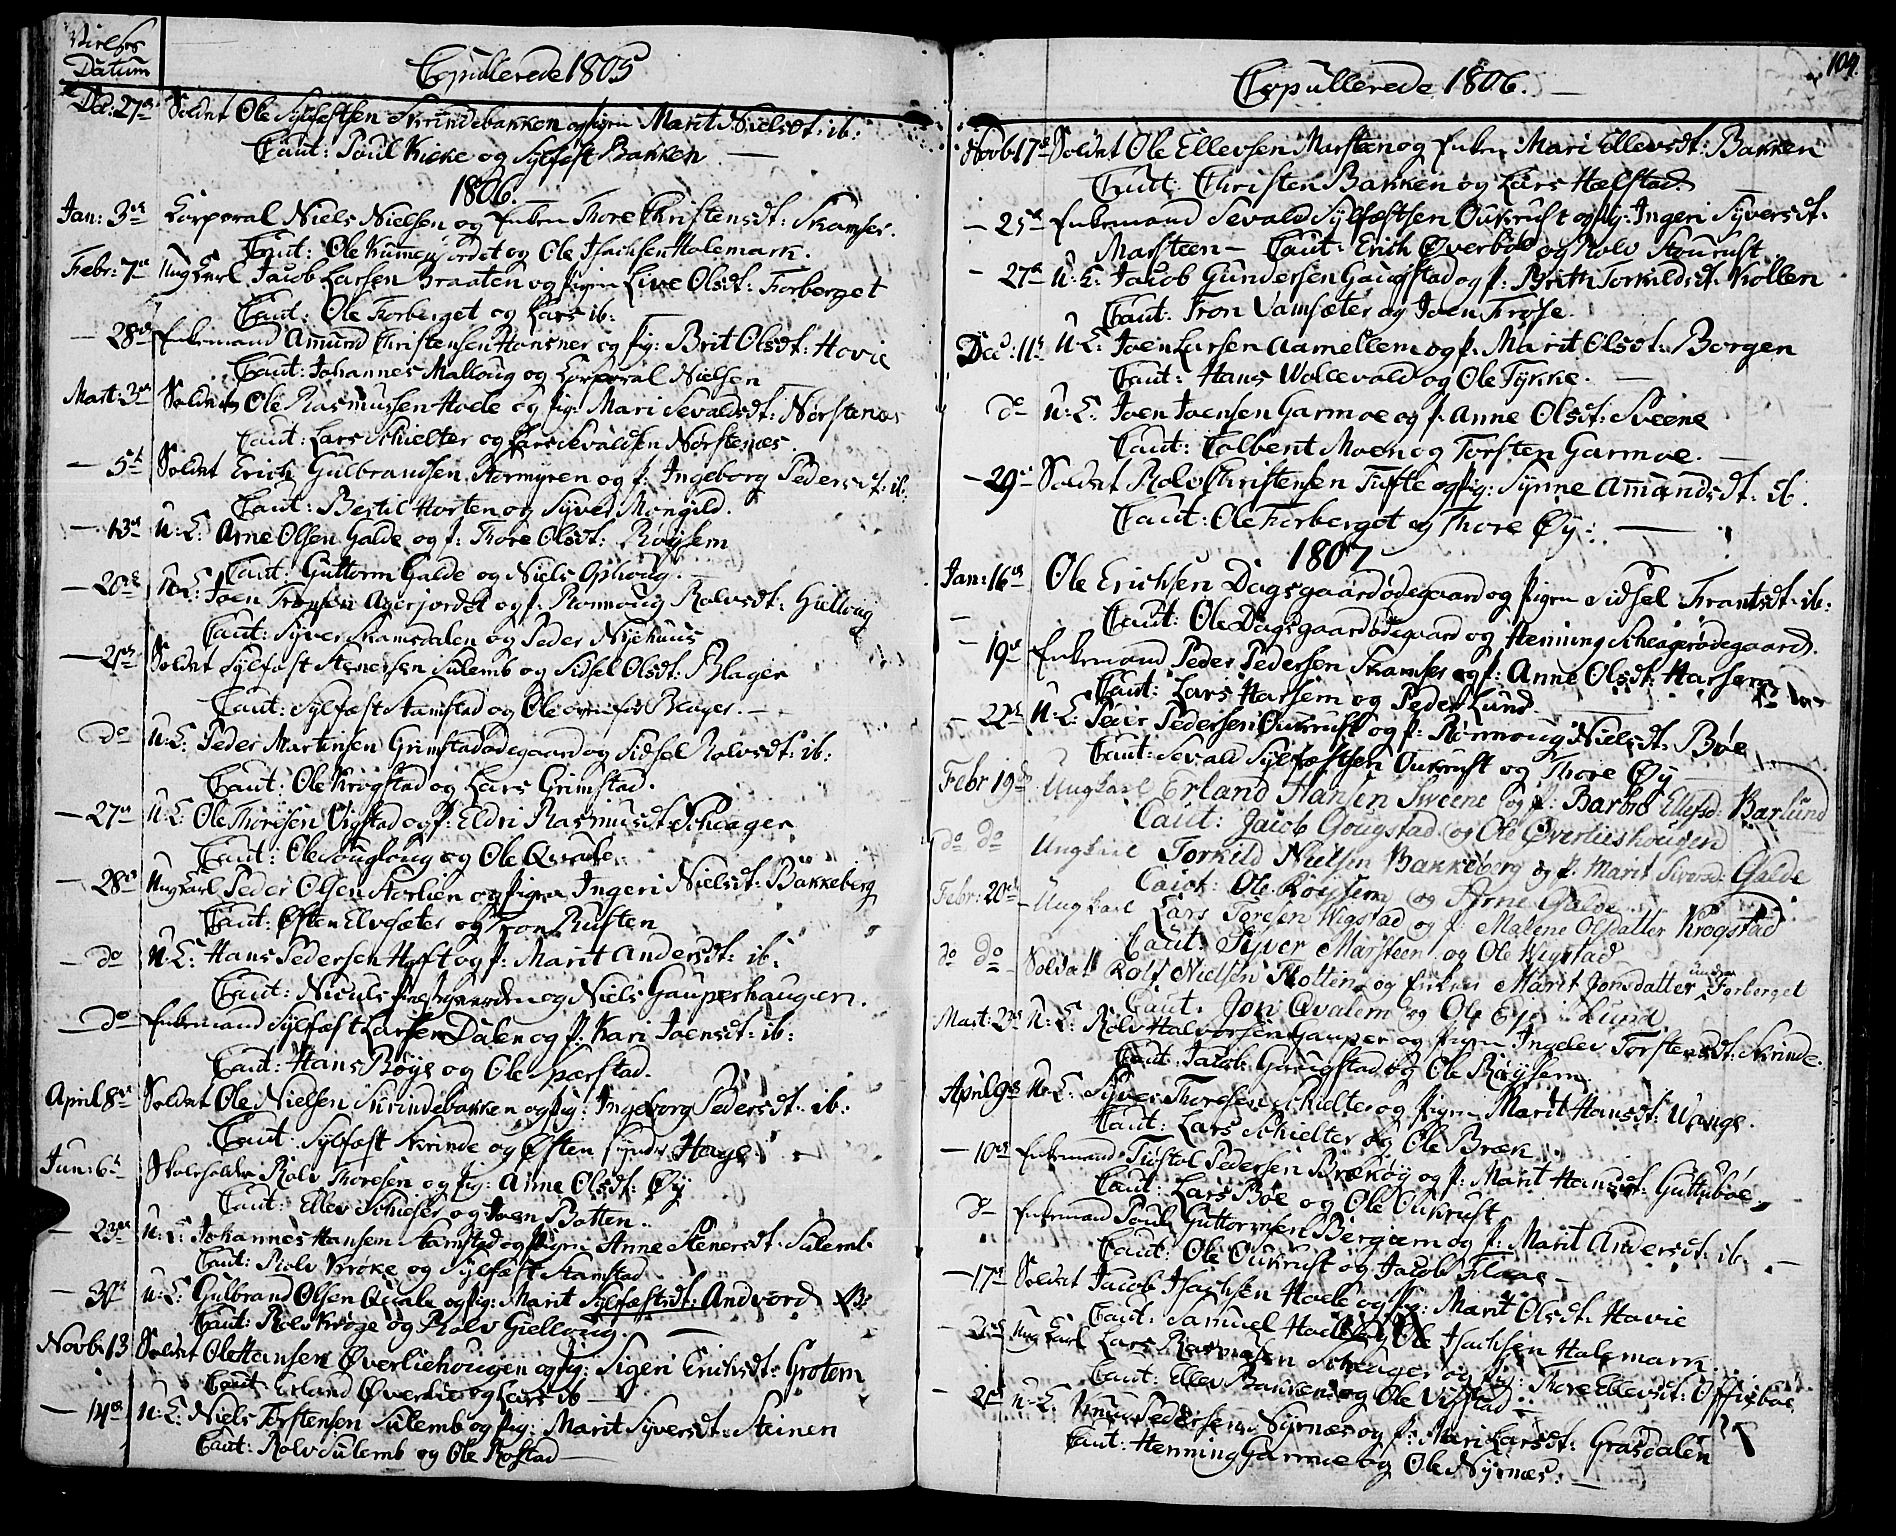 Datum
Copullerede 1805
Dec: 27de Soldat Ole Sylfestsen Skrindebakken og pigen Marit Nielsdt: ib:
Caut: Poul Kicke og Sylfest Bakken
1806.
Jan: 3de Corporal Niels Nielsen og Enken Thore Christensdt: Skamser.
Caut: Ole og Ole Isachsen Halemark.
Febr: 7de Ung Carl Jacob Larsen Braaten og pigen Live Olsdt: Forberget
Caut: Ole Forberget og Lars ib:
— 28de Enkemand Amund Christensen Hansner og pig: Brit Olsdt: Hovie
Caut: Johannes Malloug og Corporal Nielsen
Mart: 3de Soldat Ole Rasmussen Hoele og pig: Mari Sevaldsdt: Norstenæs
Caut: Lars Schielter og Lars Sevaldsen Norstenæs.
— 5te Soldat Erich Gulbrandsen Stormyren og p: Ingeborg Pedersdt: ib:
Caut: Bestil Horten og Syver Mongild.
— 13de U: C: Arne Olsen Galde og p: Thore Olsdt: Røysem
Caut: Guttorm Galde og Niels Ophoug.
— 20de U: C: Joen Tronsen Agerjordet og p: Ronnoug Rolvsdt: Gielloug
Caut: Syver Skamsdalen og Peder Nyehuus
— 21de Soldat Sylfæst Stenersen Sulemb og Sidsel Olsdt: Blager
Caut: Sylfæst Stamstad og Ole Blager.
do U: C: Peder Martinsen Grimstadødegaard og Sidsel Rolvsdt: ib:
Caut: Ole Krogstad og Lars Grimstad.
— 27de U: C: Ole Thoresen Vigstad og p: Eldri Rasmusdt: Scheager
Caut: Ole Sougloug og Ole Qvale
— 28de Ung Carl Peder Olsen Storlien og pigen Ingeri Nielsdt: Bakkeberg
Caut: Østen Elvesæter og Tron Rusten
— do U: C: Hans Pedersen Hoft og p: Marit Andersdt: ib:
Caut: Niculs Præstgaarden og Niels Gauperhaugen.
— do Enkemand Sylfæst Larsen Dalen og p: Kari Joensdt: ib:
Caut: Hans Bøye og Ole Sparstad.
April 8de Soldat Ole Nielsen Skrindebakken og pig: Ingeborg Pedersdt: ib:
Caut: Sylfæst Skrinde og Østen Hage
Jun: 6te Skoleholder Rolv Thoresen og pig: Anne Olsdt: Øy
Caut: Ellev Schieser og Joen Botten.
— 23de U: C: Johannes Hansen Stamstad og pigen Anne Stenersdt: Sulemb
Caut: Rolv Kroke og Sylfæst Stamstad
— 30te U: C: Gulbrand Olsen Qvale og pig: Marit Sylfæstsdt: Andvord
Caut: Rolv Kroge og Rolv Gielloug.
Novb: 13 Soldat Ole Hansen Øverliehougen og pig: Sigeri Erichsdt: Grotem
Caut Erland Øverlie og Lars ib —
— 14de U: C: Niels Torstensen Sulemb og pig: Marit Syversdt: Steinen
Caut: Rolv Sulemb og Ole Rostad —
104.
Copullerede 1806.
Novb 17de Soldat Ole Ellevsen Marsteen og Enken Mari Ellevsdt: Bakken
Caut: Christen Bakken og Lars Hælstad
— 25de Enkemand Sevald Sylfæstsen Oukrust og pig: Ingeri Syversdt:
Marsteen — Caut: Erich Øverbøe og Rolv Stourust
— 27de U: C: Jacob Gundersen Gaugstad og p: Brith Torkildsdt: Kollen
Caut: Tron Vamsæter og Joen Frøse.
Decb: 11te U: C: Joen Larsen Aamellem og p: Marit Olsdt: Borgen
Caut: Hans Wollevald og Ole Fyrke.
do U: C: Joen Joensen Garmoe og p: Anne Olsdt: Sveene
Caut: Colbent Moen og Torsten Garmoe.
— 29de Soldat Rolv Christensen Tufte og pig: Synne Amundsdt: ib.
Caut: Ole Forberget og Thore Øy:
1807
Jan: 16de Ole Erichsen Dagsgaardødegaard og pigen Sidsel Frantsdt: ib:
Caut: Ole Dagsgaardødegaard og Henning Scheagerødegaard.
— 19de Enkemand Peder Pedersen Skamser og p: Anne Olsdt: Harsem
Caut: Lars Harsem og Peder Lund.
— 22de U: C: Peier Pedersen Oukrust og p: Rønnoug Nielsdt: Bøe
Caut: Sevald Sylfæstsen Oukrust og Thore Øy
Febr 19de Ungkarl Erland Hansen Sveene og p: Barbro Ellefsd: Barlund
Caut: Jacob Gougstad og Ole Øverliehougen
do do Ungkarl Torkild Nielsen Bakkeberg og p: Marit Siversd: Galde
Caut: Ole Røysem og Arne Galde
Febr: 20de Ungkarl Lars Toresen Wigstad og p: Malene Olsdatter Krogstad
Caut: Syver Marsteen og Ole Wigstad
do do Soldat Rolf Nielsen Flotten og Enken Marit Jonsdatter under Forberget
Caut: Jon Qvalem og Ole Eje Lund
Mart: 23de U: C: Rolv Halvorsen Gauper og pigen Ingelev Torstensdt: Skrinde.
Caut: Jacob Gaugstad og Ole Røysem
April 9de U: C: Syver Thoresen Schielter og pigen Marit Hansdt: Uange.
Caut: Lars Schielter og Ole Bræk
— 10de Enkemand Tiøstol Pedersen Brækøy og p: Marit Hansdt: Guttubøe
Caut: Lars Bøe og Ole Oukrust
do Enkemand Poul Guttormsen Bergiem og p: Marit Andersdt: ib.
Caut: Ole Oukrust og Jacob Flaae —
— 17de Soldat Jacob Isachsen Hoele og pig: Marit Olsdt: Hovie
Caut: Samuel Hoele og Ole Isachsen Halemark.
Ung Carl Lars Rasmussen Scheager og pig: Thore Ellevsdt: Offigboe
Caut: Ellev Bakken og Ole Vigstad
— U: C: Knud Pedersen Nyrnæs og p: Mari Larsdt: Grasdalen
Caut: Henning Garmoe og Ole Nyrnæs: